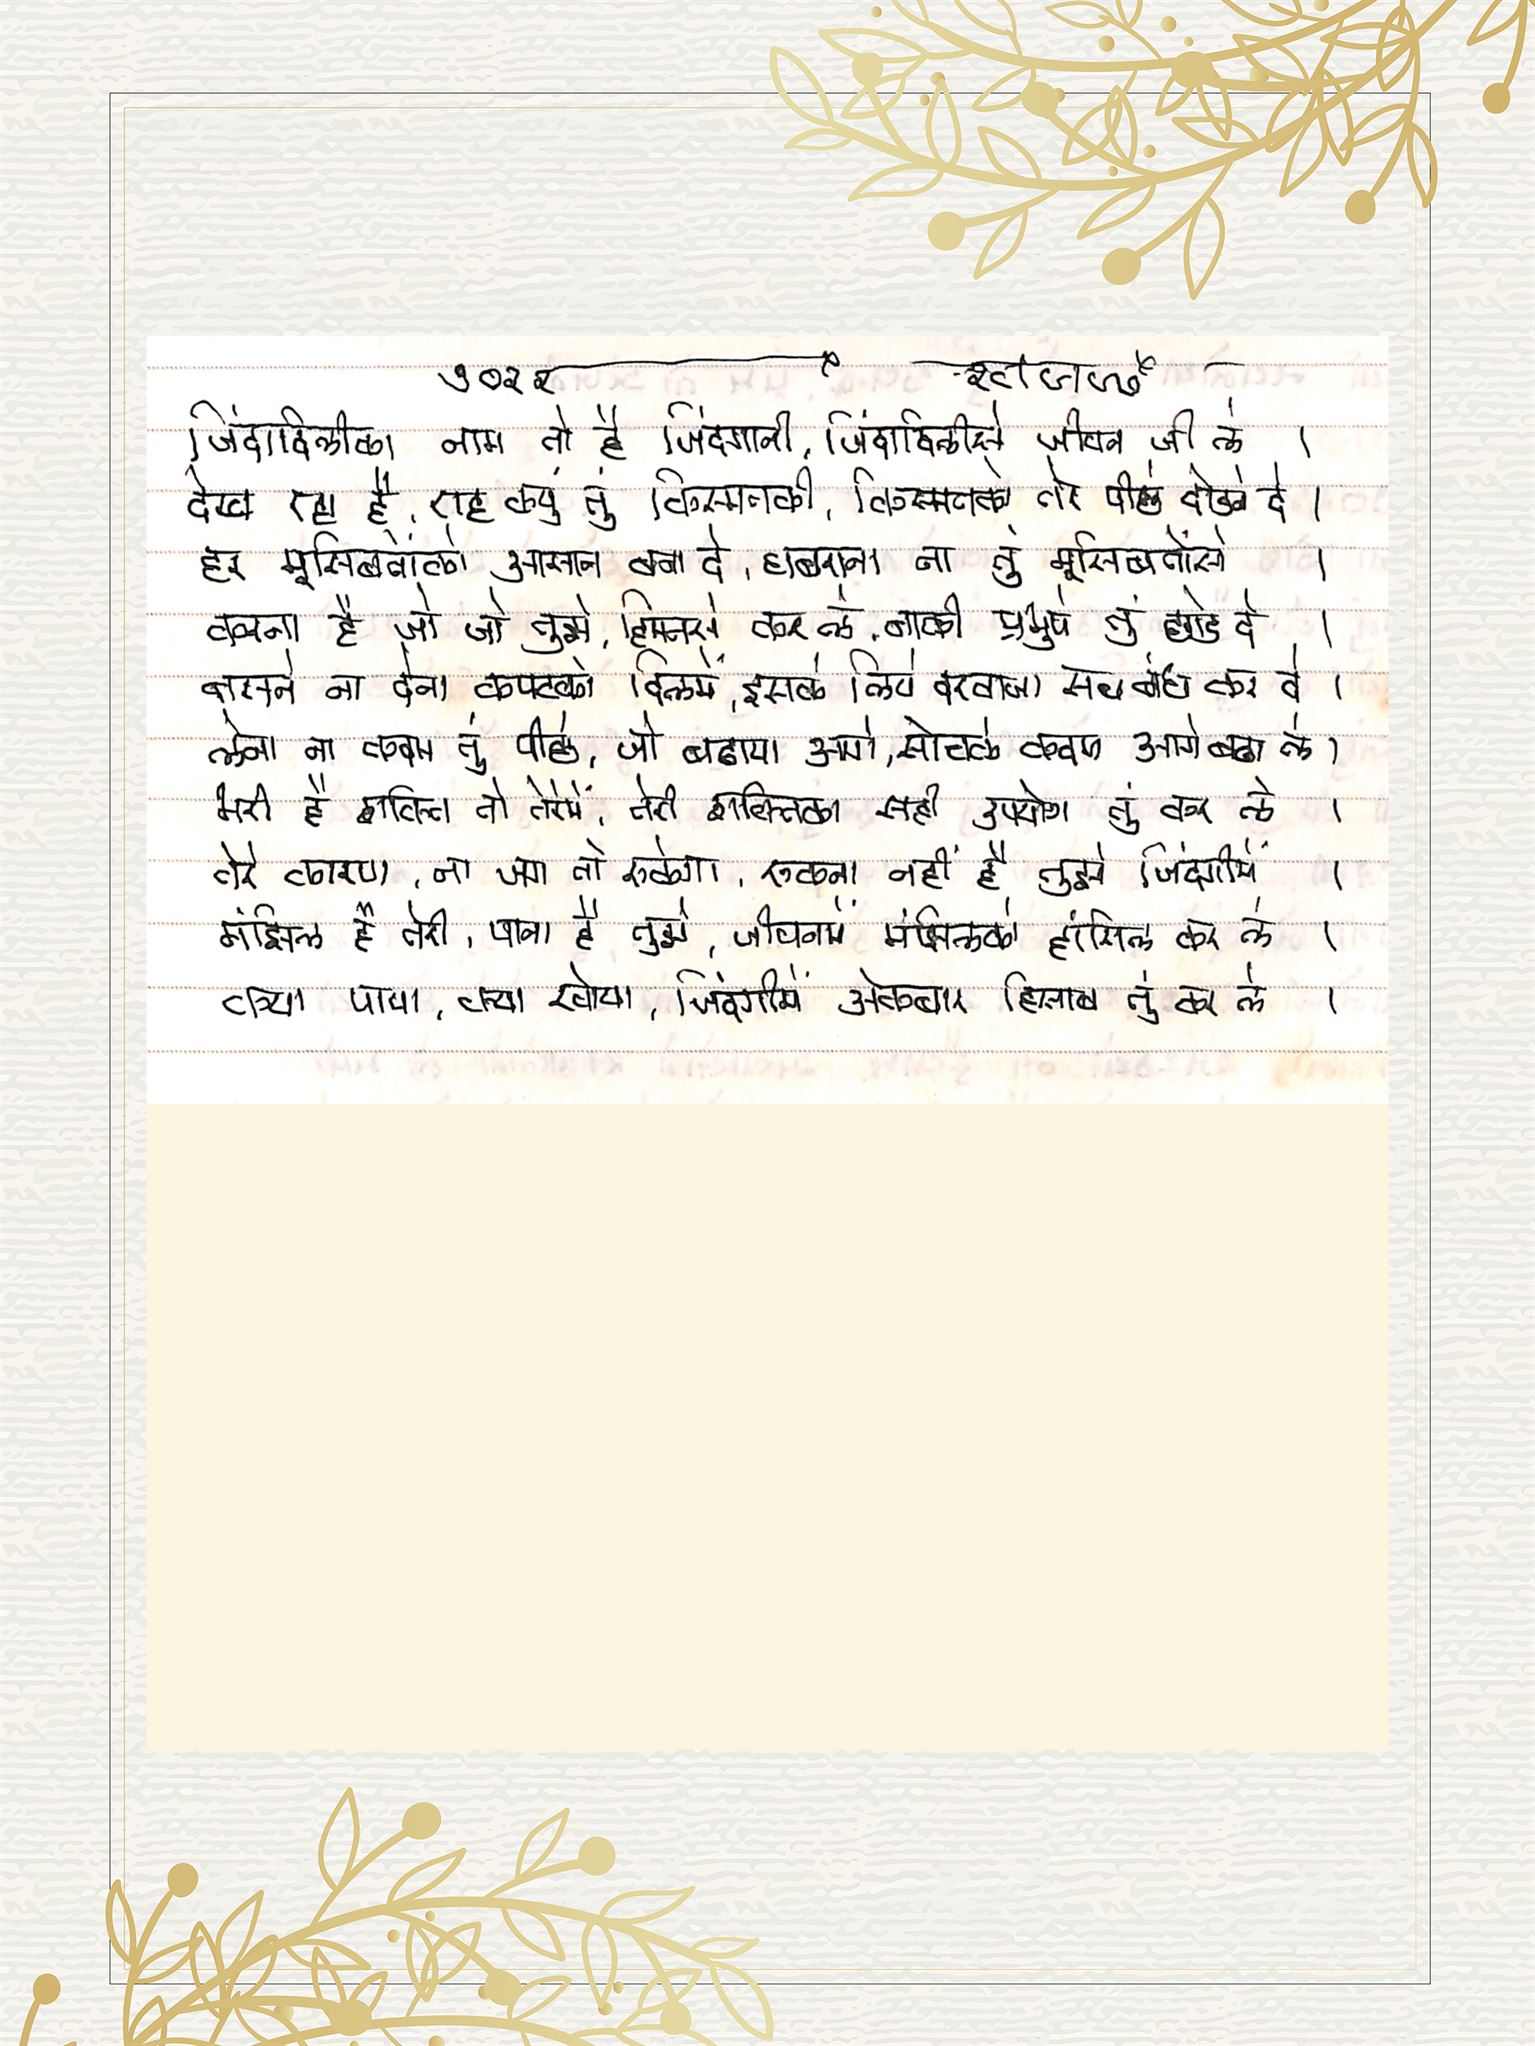 ७०२२
जिंदादिलीका नाम तो है जिंदगानी, जिंदादिलीसे जीवन जी ले ।
देख रहा है, राह क्युं तुं किस्मतकी, किस्मतको तेरे पीछे दोडने दे ।
हर मूसिबतोंको आसान बना दे, घाबराना ना तुं मूसिबतोंसे ।
करना है जो जो तुझे, हिंमतसे कर ले, बाकी प्रभुपे तुं छोड दे ।
बासने ना देना कपटको दिलमें, इसके लिये दरवाजा सब बंध कर दे ।
लेना ना कदम तुं पीछे, जो बढाया आगे, सोचके कदम आगे बढा ले ।
भरी है शक्ति तो तेरेमें, तेरी शक्तिका सही उपयोग तुं कर ले ।
तेरे कारण, ना जग तो रुकेगा, रुकना नहीं है तुझे जिंदगीमें ।
मंझिल है तेरी, पाना है तुझे, जीवनमें मंझिलको हांसिल कर ले ।
क्या पाया, क्या खोया, जिंदगीमें अेकबार हिसाब तुं कर ले ।